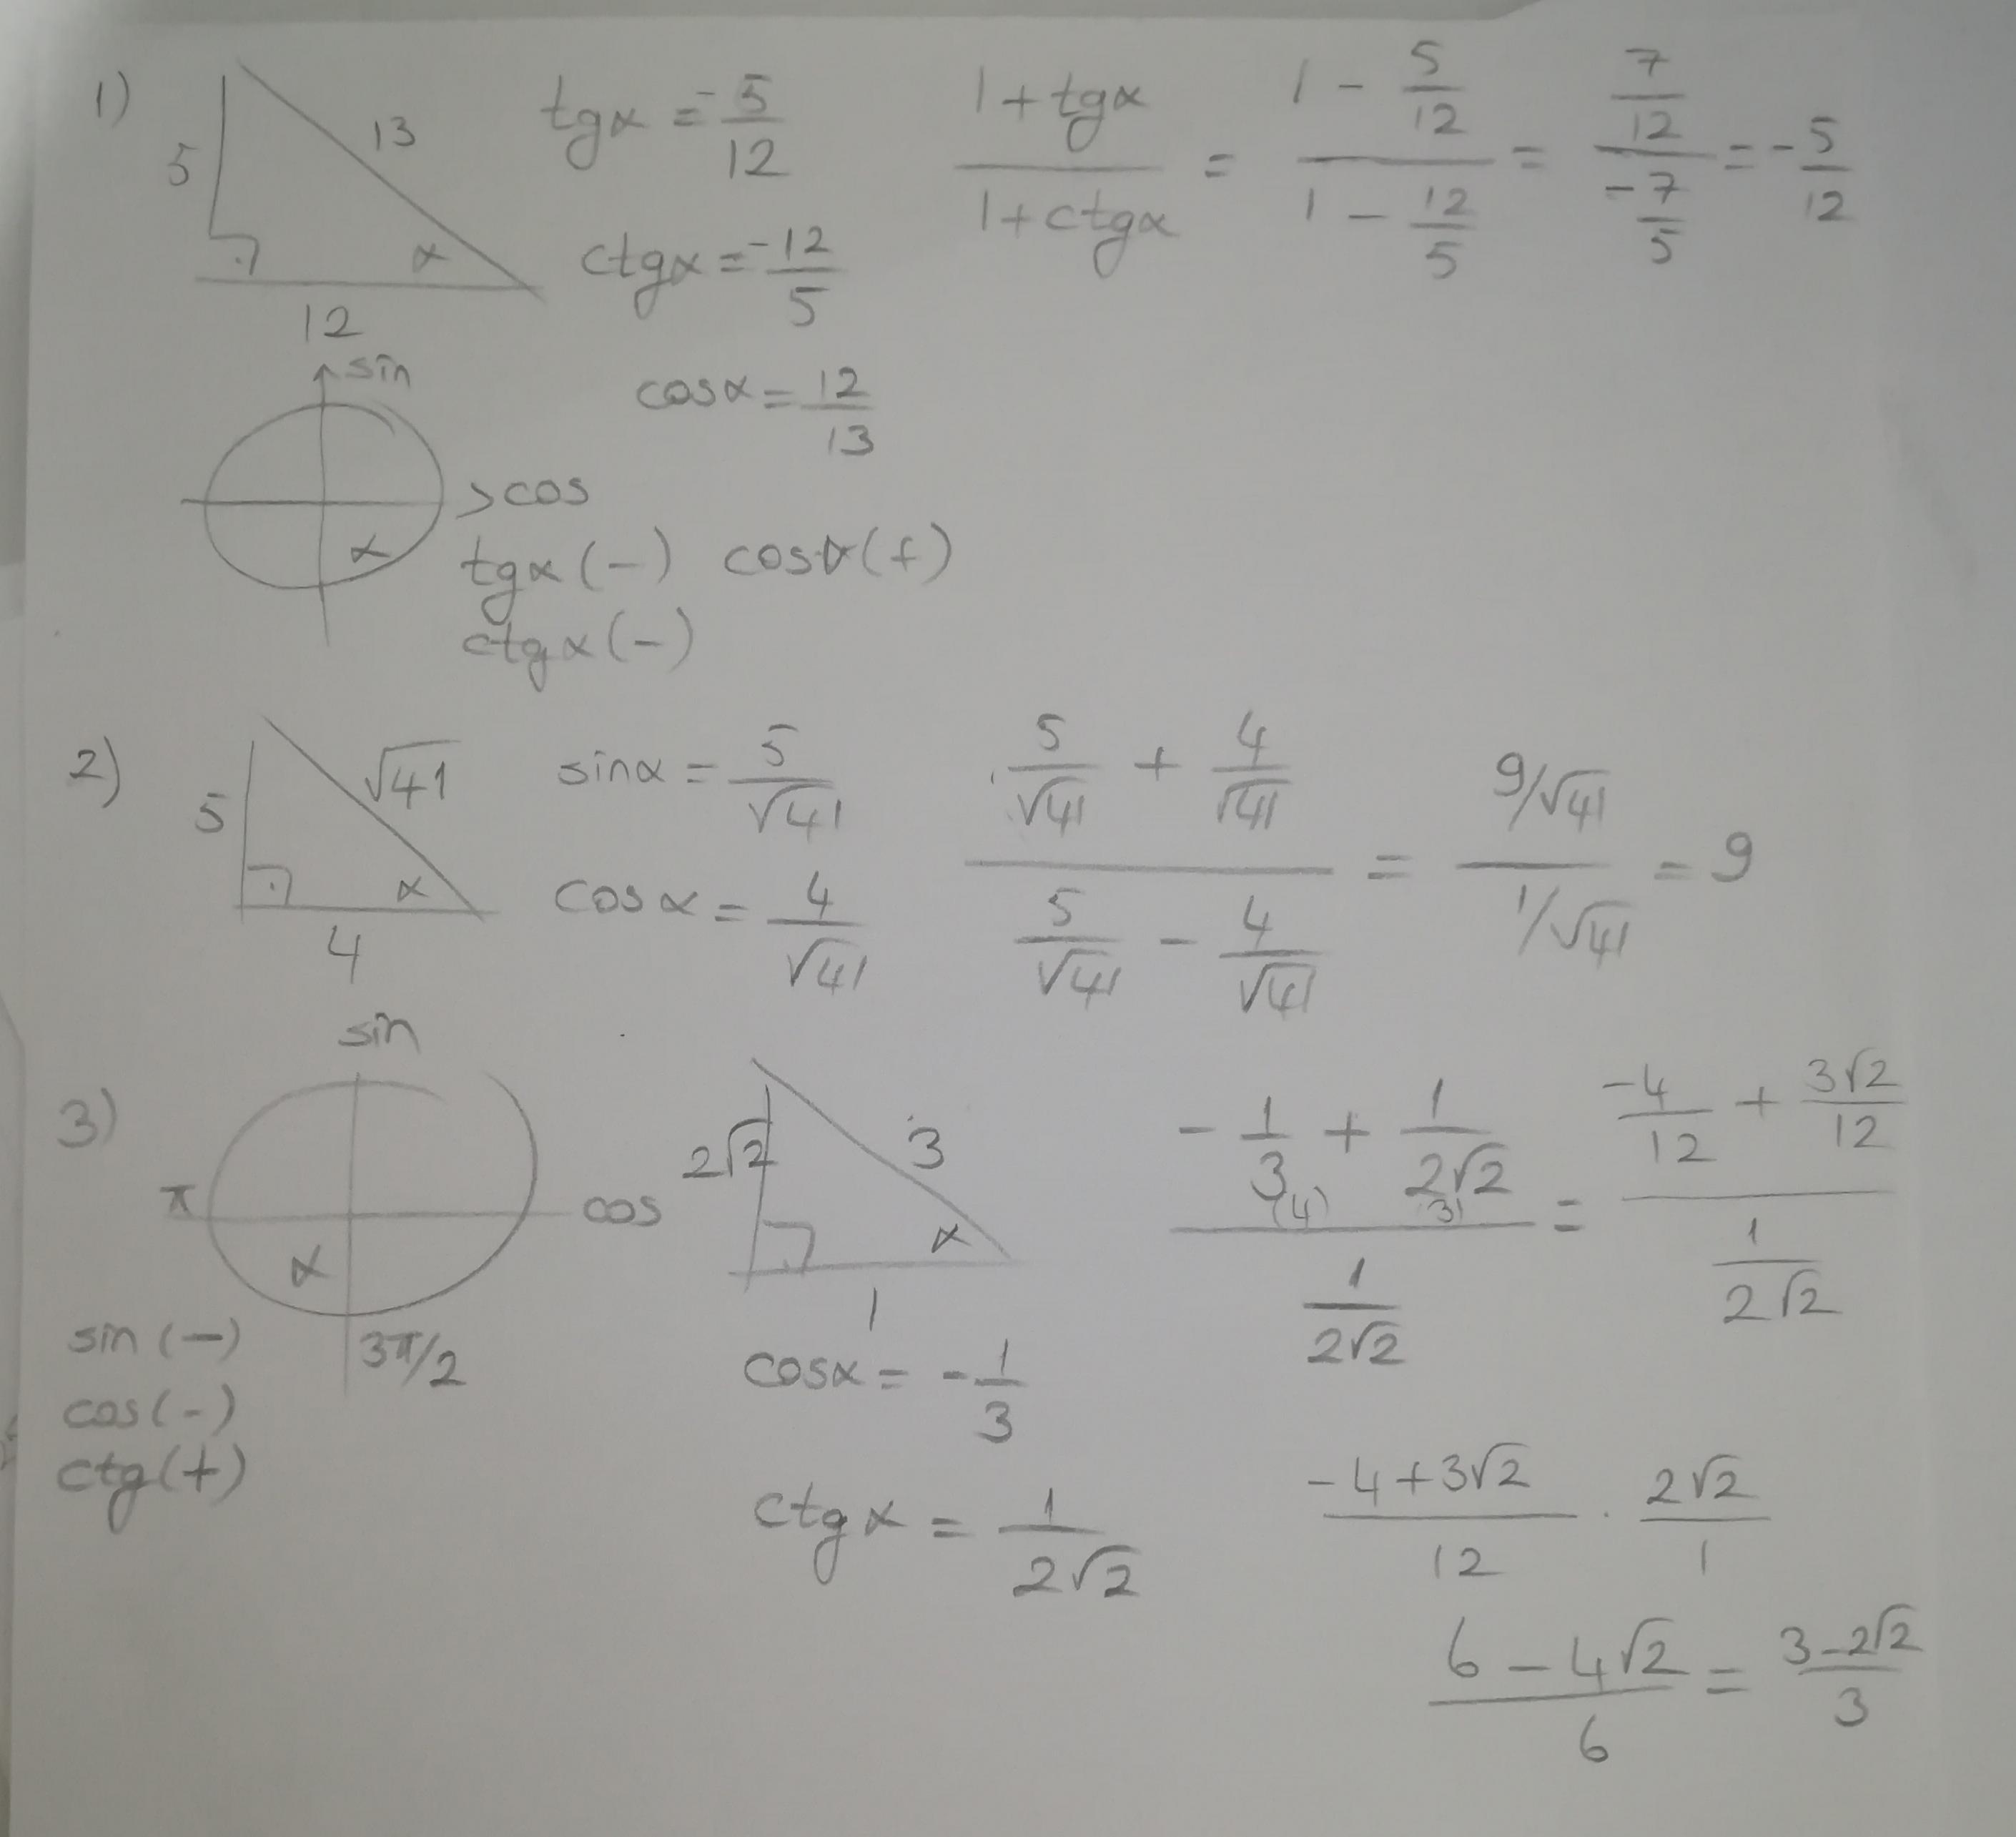 1)
5
13
12
α
tgα = -5/12
ctgα = -12/5
cosα = 12/13
(1+tgα)/(1+ctgα) = (1 - 5/12)/(1 - 12/5) = (7/12)/(-7/5) = -5/12
sin
>cos
α
tgα (-) cosα (+)
ctgα (-)
2)
5
√41
4
α
sinα = 5/√41
cosα = 4/√41
(5/√41 + 4/√41)/(5/√41 - 4/√41) = (9/√41)/(1/√41) = 9
3)
sin
π
cos
α
3π/2
sin (-)
cos (-)
ctg (+)
2√2
3
1
α
cosα = -1/3
ctgα = 1/2√2
(-1/3 + 1/2√2)/(1/2√2) = (-4/12 + 3√2/12)/(1/2√2)
(4) 3)
(-4+3√2)/12 . 2√2/1
(6-4√2)/6 = (3-2√2)/3